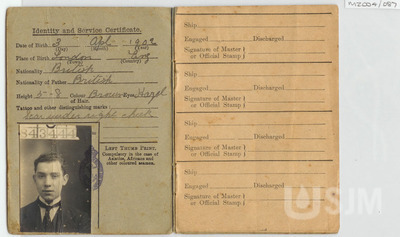 MZ004/087
Identity and Service Certificate.
Date of Birth 3 1903
(Day) (Month) (Year)
Place of Birth London Eng
(Town) (County)
Nationality British
Nationality of Father British
Height 5-8 Colour of Hair. Brown Eyes Hazel
Tattoo and other distinguishing marks:
Scar under right cheek
LEFT THUMB PRINT,
Compulsory in the case of
Asiatics, Africans and
other coloured seamen.
Ship
Engaged Discharged
Signature of Master
or Official Stamp
Ship
Engaged Discharged
Signature of Master
or Official Stamp
Ship
Engaged Discharged
Signature of Master
or Official Stamp
Ship
Engaged Discharged
Signature of Master
or Official Stamp
SJM